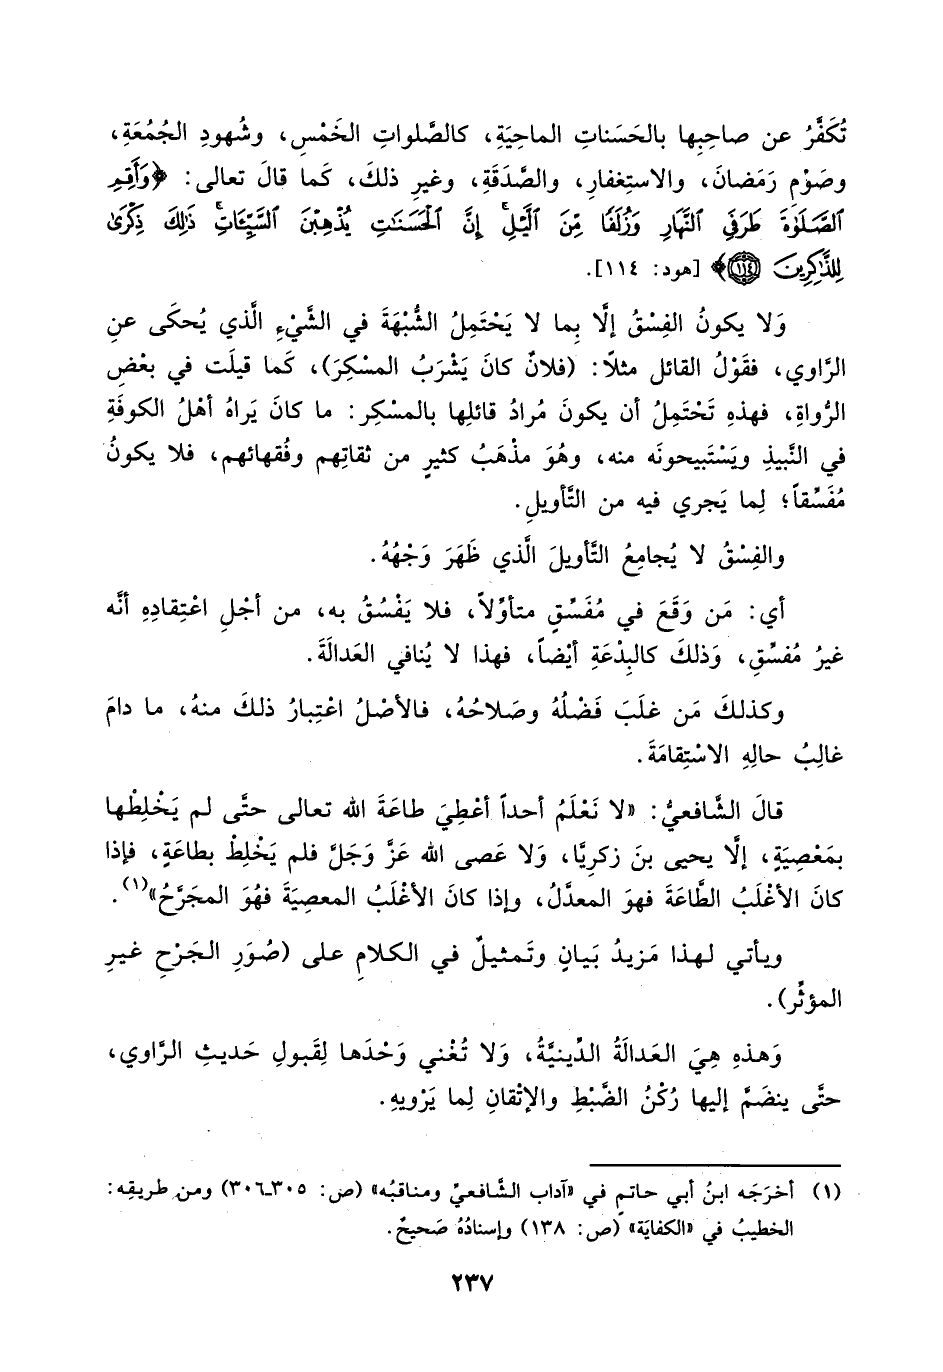 تُكَفَّرُ عن صاحِبِها بالحَسَناتِ الماحِيَةِ، كالصَّلواتِ الخَمْسِ، وشُهودِ الجُمُعَةِ،
وصَوْمِ رَمَضانَ، والاستِغفارِ، والصَّدَقَةِ، وغيرِ ذلكَ، كَما قالَ تعالى: ﴿وَأَقِمِ
ٱلصَّلَوٰةَ طَرَفَيِ ٱلنَّهَارِ وَزُلَفًا مِّنَ ٱلَّيْلِ ۚ إِنَّ ٱلْحَسَنَٰتِ يُذْهِبْنَ ٱلسَّيِّـَٔاتِ ۚ ذَٰلِكَ ذِكْرَىٰ
لِلذَّٰكِرِينَ ١١٤﴾ [هود: ١١٤].
وَلا يكونُ الفِسْقُ إلَّا بِما لا يَحْتَمِلُ الشُّبْهَةَ في الشَّيْءِ الَّذي يُحكَى عنِ
الرَّاوي، فقَوْلُ القائل مثلًا: (فلانٌ كانَ يَشْرَبُ المسْكِرَ)، كَما قيلَت في بعْضِ
الرُّواةِ، فهذهِ تَحْتَمِلُ أن يكونَ مُرادُ قائلِها بالمسْكِر: ما كانَ يَراهُ أهْلُ الكوفَةِ
في النَّبيذِ ويَسْتَبيحونَه منه، وهُوَ مذْهَبُ كثيرٍ من ثقاتِهم وفُقهائهم، فلا يكونُ
مُفَسِّقاً؛ لِما يَجري فيه من التَّأويلِ.
والفِسْقُ لا يُجامِعُ التَّأويلَ الَّذي ظَهَرَ وَجْهُهُ.
أي: مَن وَقَعَ في مُفَسِّقٍ متأوِّلاً، فلا يَفْسُقُ به، من أجْلِ اعْتِقادِهِ أنَّه
غيرُ مُفسِّقٍ، وَذلكَ كالبِدْعَةِ أيْضاً، فهذا لا يُنافي العَدالَةَ.
وكذلكَ مَن غلَبَ فَضْلُهُ وصَلاحُهُ، فالأصْلُ اعْتِبارُ ذلكَ منهُ، ما دامَ
غالِبُ حالِهِ الاسْتِقامَةَ.
قالَ الشَّافعيُّ: «لا نَعْلَمُ أحداً أعْطِيَ طاعَةَ الله تعالى حتَّى لم يَخْلِطْها
بمَعْصِيَةٍ، إلَّا يحيى بنَ زكريَّا، وَلا عَصى الله عَزَّ وَجَلَّ فلم يَخْلِطْ بطاعَةٍ، فإذا
كانَ الأغْلَبُ الطَّاعَةَ فهوَ المعدَّلُ، وإذا كانَ الأغْلَبُ المعصِيَةَ فهُوَ المجَرَّحُ»(١).
ويأتي لهذا مَزيدُ بَيانٍ وتَمثيلٌ في الكلامِ على (صُوَرِ الجَرْحِ غيرِ
المؤثِّر).
وَهذهِ هِيَ العَدالَةُ الدِّينيَّةُ، وَلا تُغْني وَحْدَها لِقَبولِ حَديثِ الرَّاوي،
حتَّى ينضَمَّ إليها رُكْنُ الضَّبْطِ والإتْقانِ لِما يَرْويهِ.
(١) أخرَجَه ابنُ أبي حاتمٍ في «آداب الشَّافعيِّ ومناقبُه» (ص: ٣٠٥ـ٣٠٦) ومن طريقِه:
الخطيبُ في «الكفايَة» (ص: ١٣٨) وإسنادُهُ صَحيحٌ.
٢٣٧